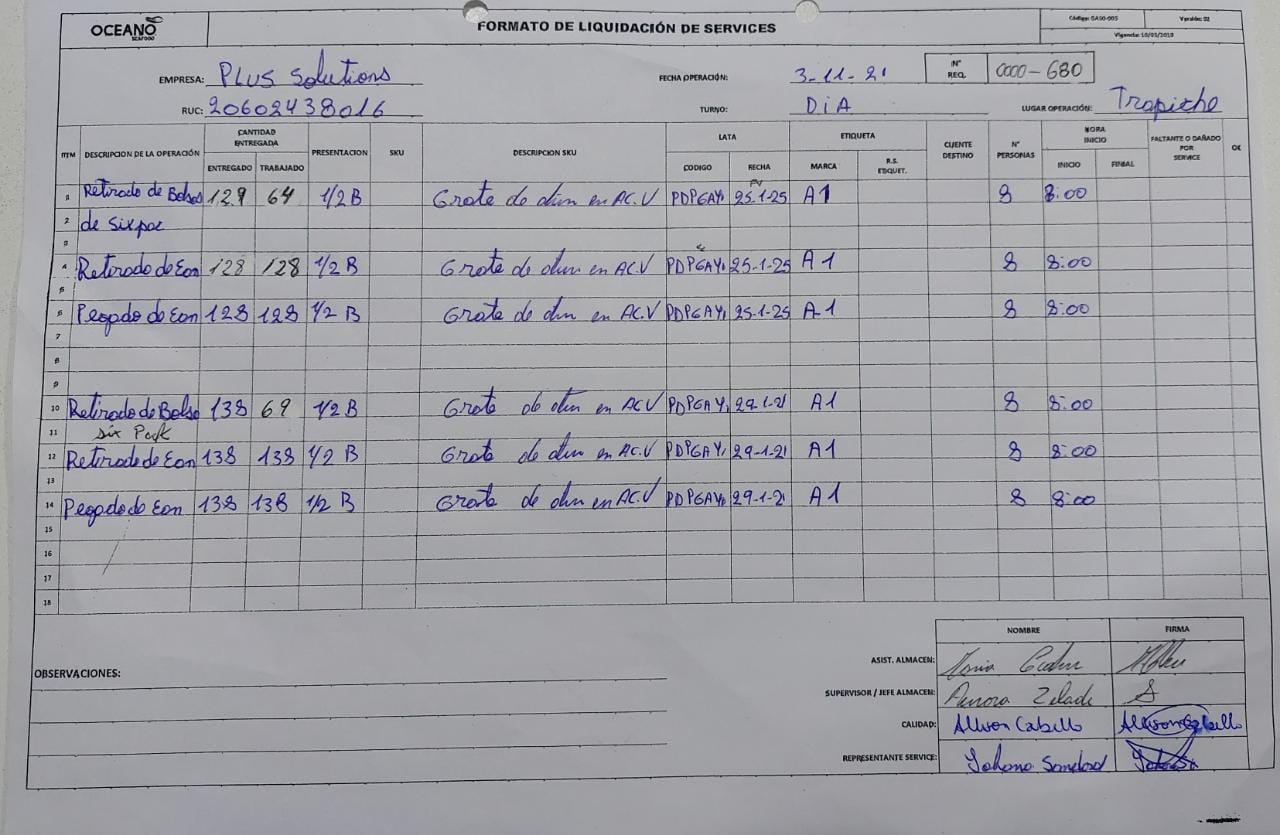 OCEANO
SEAFOOD
FORMATO DE LIQUIDACIÓN DE SERVICES
Código: GA00-005 Versión: 02
Vigencia: 10/01/2019
EMPRESA: PLUS Solutions
FECHA OPERACIÓN: 3-11-21
N° REQ. 0000-680
RUC: 20602438016
TURNO: DiA
LUGAR OPERACIÓN: Trapiche
ITEM DESCRIPCION DE LA OPERACIÓN CANTIDAD ENTREGADA ENTREGADO TRABAJADO PRESENTACION SKU DESCRIPCION SKU LATA CODIGO FECHA ETIQUETA MARCA R.S. ETIQUET. CLIENTE DESTINO N° PERSONAS HORA INICIO INICIO FINIAL FALTANTE O DAÑADO POR SERVICE OK
FV
1 Retirado de Bolsas 129 64 1/2 B Grate de atun en AC.V PDPGAY 25-1-25 A1 8 8:00
2 de Six pac
3
4 Retirado de Eon 128 128 1/2 B Grate de atun en AC.V PDPGAY 25-1-25 A1 8 8:00
5
6 Pegado de Eon 128 128 1/2 B Grate de atun en AC.V PDPGAY 25-1-25 A1 8 8:00
7
8
9
10 Retirado de Bolsa 138 69 1/2 B Grate de atun en AC.V PDPGAY 29-1-21 A1 8 8:00
11 Six Pack
12 Retirado de Eon 138 138 1/2 B Grate de atun en AC.V PDPGAY 29-1-21 A1 8 8:00
13
14 Pegado de Eon 138 138 1/2 B Grate de atun en AC.V PDPGAY 29-1-21 A1 8 8:00
15
16
17
18
NOMBRE FIRMA
OBSERVACIONES:
ASIST. ALMACEN:
SUPERVISOR / JEFE ALMACEN: Aurora Zelade
CALIDAD: Allison Cabello Allison Cabello
REPRESENTANTE SERVICE: Johana Sandoval